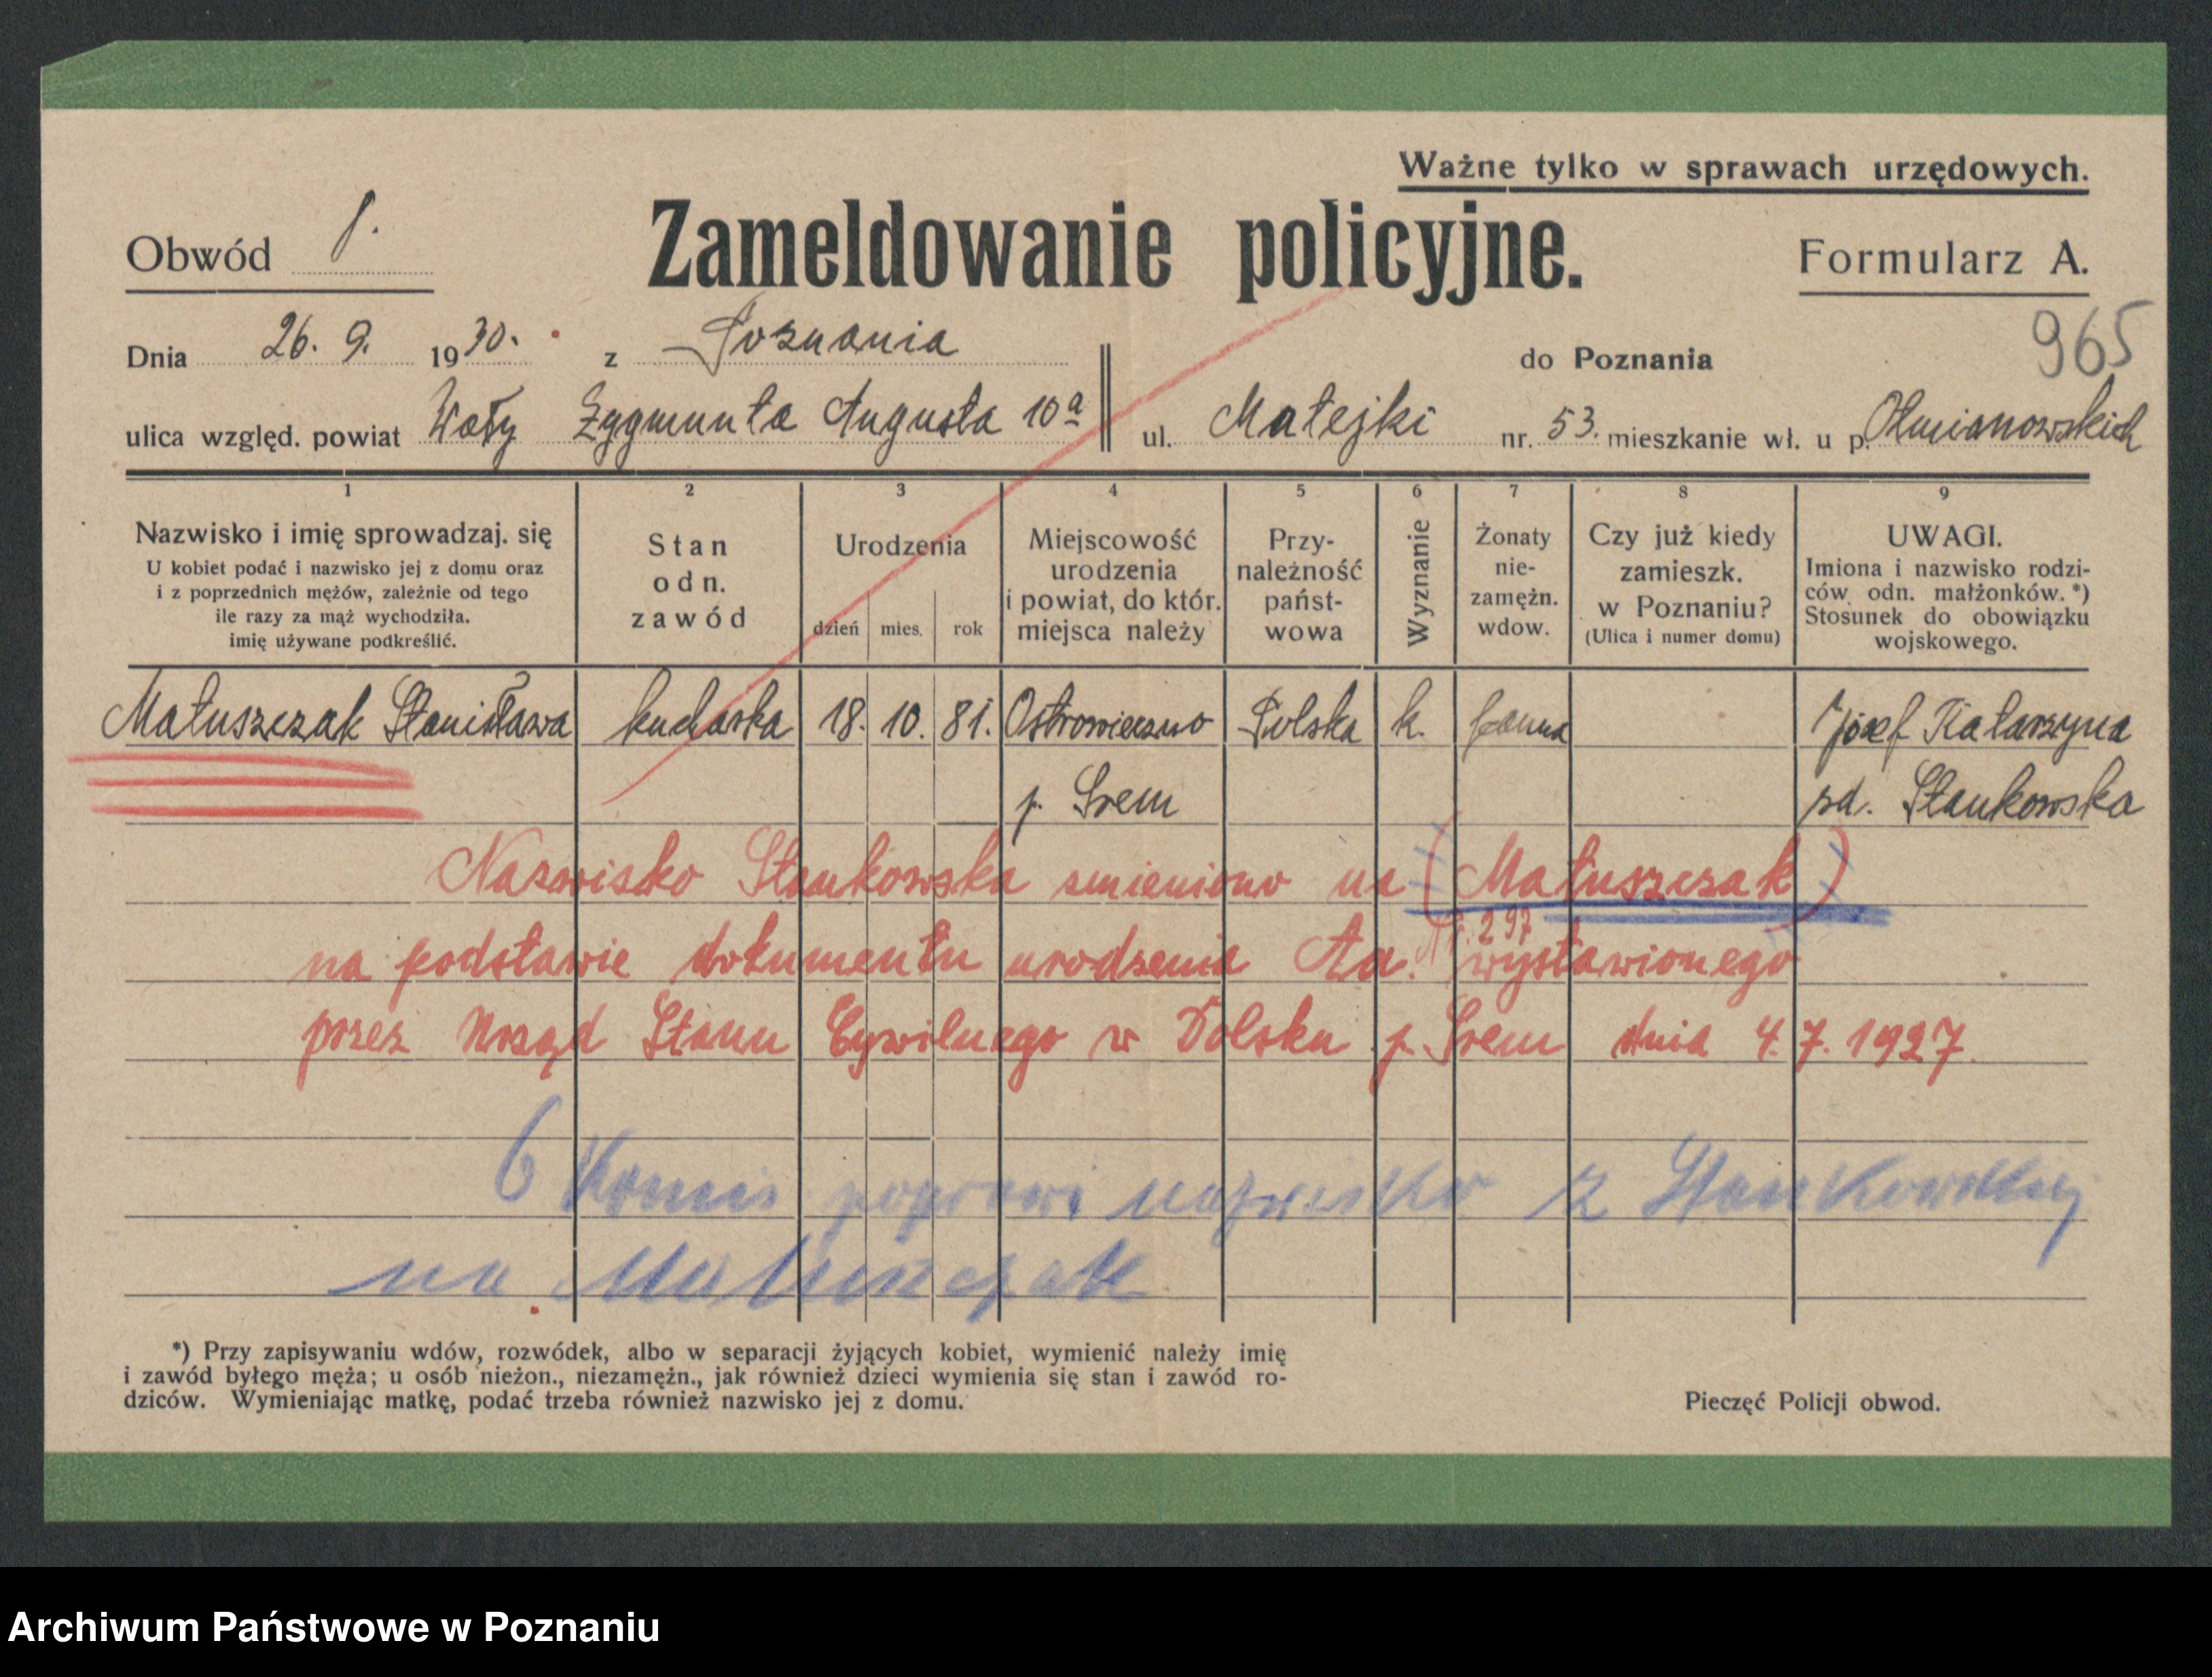 Ważne tylko w sprawach urzędowych.
Obwód
Zameldowanie policyjne.
Formularz A.
965
Dnia 26. 9. 1930. z Poznania do Poznania
ulica względ. powiat Wały Zygmunta Augusta 10a ul. Matejki nr. 53. mieszkanie wł. u p.
1 2 3 4 5 6 7 8 9
Nazwisko i imię sprowadzaj. się
U kobiet podać i nazwisko jej z domu oraz
i z poprzednich mężów, zależnie od tego
ile razy za mąż wychodziła.
imię używane podkreślić.
Stan
odn.
zawód
Urodzenia
dzień mies. rok
Miejscowość
urodzenia
i powiat, do któr.
miejsca należy
Przy-
należność
państ-
wowa
Wyznanie
Żonaty
nie-
zamężn.
wdow.
Czy już kiedy
zamieszk.
w Poznaniu?
(Ulica i numer domu)
UWAGI.
Imiona i nazwisko rodzi-
ców odn. małżonków.*)
Stosunek do obowiązku
wojskowego.
Matuszczak Stanisława kucharka 18. 10. 81. Ostrowieczno Polska k. panna Józef Katarzyna
p. Śrem zd. Stankowska
Nazwisko Stankowska zmieniono na (Matuszczak)
na podstawie dokumentu urodzenia Nr. 297 wystawionego
przez Urząd Stanu Cywilnego w Dolsku p. Śrem dnia 4. 7. 1927.
6 Komis poprawi nazwisko z Stankowskiej
na Matuszczak
*) Przy zapisywaniu wdów, rozwódek, albo w separacji żyjących kobiet, wymienić należy imię
i zawód byłego męża; u osób nieżon., niezamężn., jak również dzieci wymienia się stan i zawód ro-
dziców. Wymieniając matkę, podać trzeba również nazwisko jej z domu.
Pieczęć Policji obwod.
Archiwum Państwowe w Poznaniu